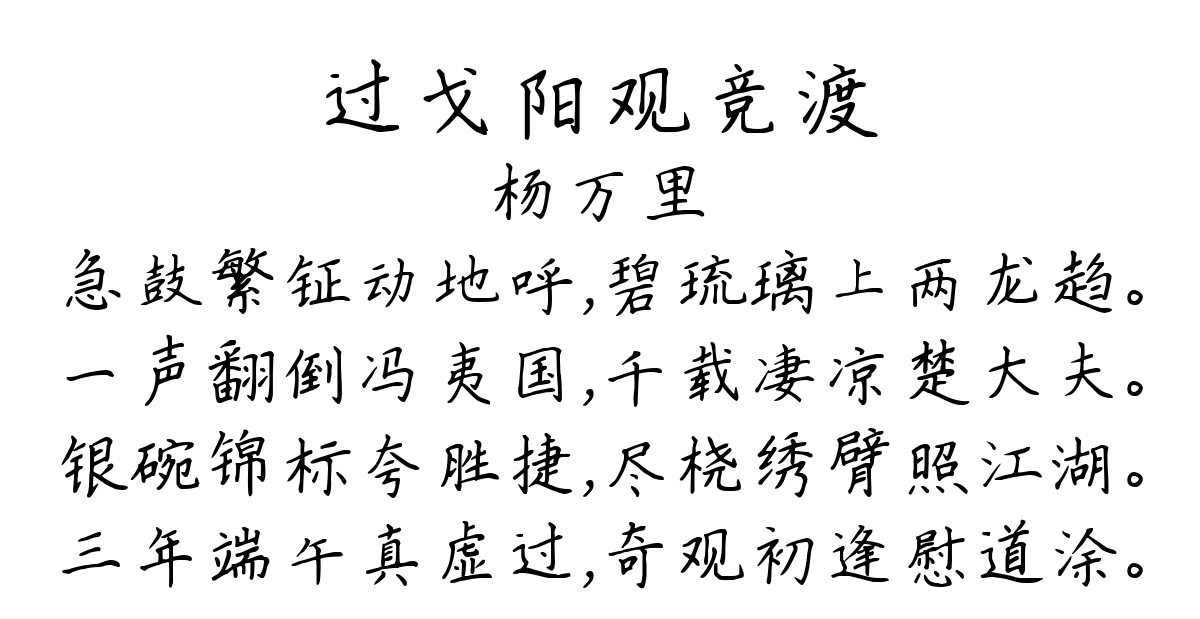 过戈阳观竞渡
杨万里
急鼓繁钲动地呼,碧琉璃上两龙趋。
一声翻倒冯夷国,千载凄凉楚大夫。
银碗锦标夸胜捷,尽桡绣臂照江湖。
三年端午真虚过,奇观初逢慰道涂。